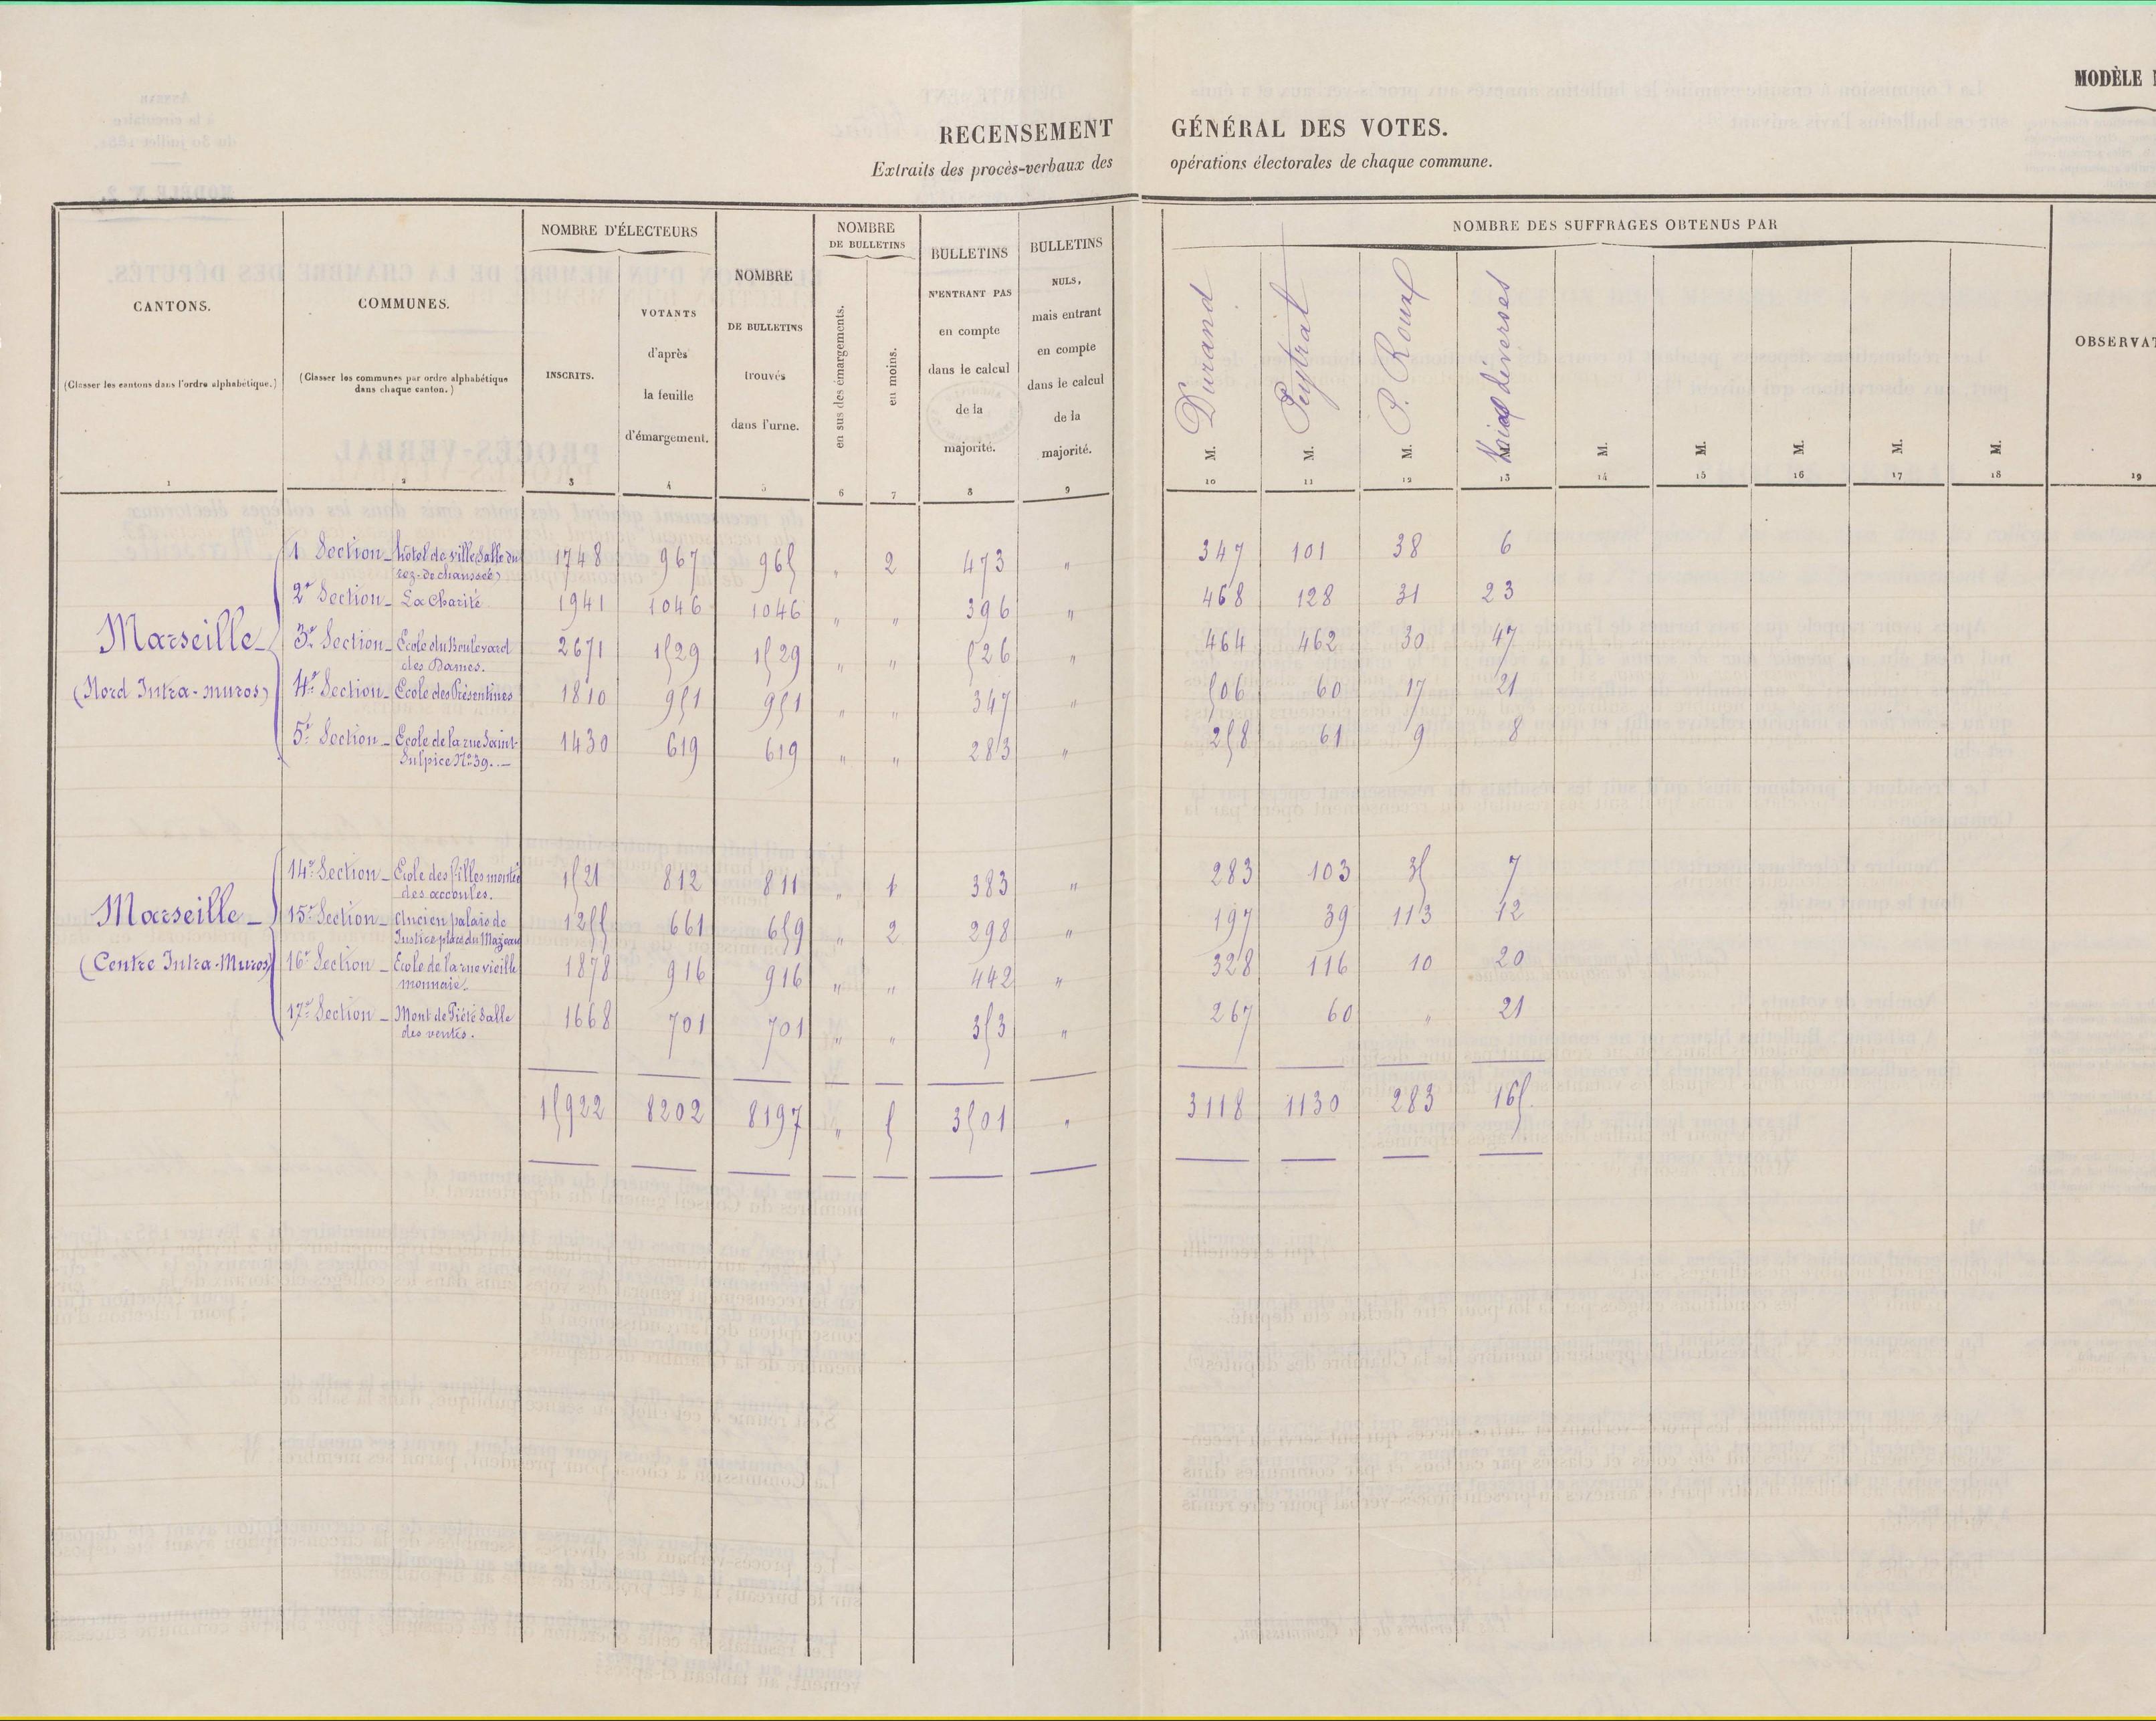 MODÈLE
RECENSEMENT GÉNÉRAL DES VOTES.
Extraits des procès-verbaux des opérations électorales de chaque commune.
CANTONS.
(Classer les cantons dans l'ordre alphabétique.)
1
COMMUNES.
(Classer les communes par ordre alphabétique
dans chaque canton.)
2
NOMBRE D'ÉLECTEURS
INSCRITS.
3
VOTANTS
d'après
la feuille
d'émargement.
4
NOMBRE
DE BULLETINS
trouvés
dans l'urne.
5
NOMBRE
DE BULLETINS
en sus des émargements.
6
en moins.
7
BULLETINS
N'ENTRANT PAS
en compte
dans le calcul
de la
majorité.
8
BULLETINS
NULS,
mais entrant
en compte
dans le calcul
de la
majorité.
9
NOMBRE DES SUFFRAGES OBTENUS PAR
M. Durand
10
M. Peytral
11
M. P. Roux
12
M. Voix diverses
13
M.
14
M.
15
M.
16
M.
17
M.
18
OBSERVAT
19
Marseille
(Nord Intra-muros)
1 Section - hôtel de ville (Salle du rez-de-chaussée) 1748 967 965 " 2 473 " 347 101 38 6
2e Section - La Charité 1941 1046 1046 " " 396 " 468 128 31 23
3e Section - Ecole du Boulevard des Dames. 2671 1529 1529 " " 526 " 464 462 30 47
4e Section - Ecole des Présentines 1810 951 951 " " 347 " 506 60 17 21
5e Section - Ecole de la rue Saint-Sulpice No 39. - 1430 619 619 " " 283 " 258 61 9 8
Marseille -
(Centre Intra-Muros)
14e Section - Ecole des filles montée des accoules. 1521 812 811 " 1 383 " 283 103 35 7
15e Section - Ancien palais de Justice place du Mazeau 1255 661 659 " 2 298 " 197 39 113 12
16e Section - Ecole de la rue vieille monnaie. 1878 916 916 " " 442 " 328 116 10 20
17e Section - Mont de Piété Salle des ventes. 1668 701 701 " " 353 " 267 60 " 21
15922 8202 8197 " 5 3501 " 3118 1130 283 165